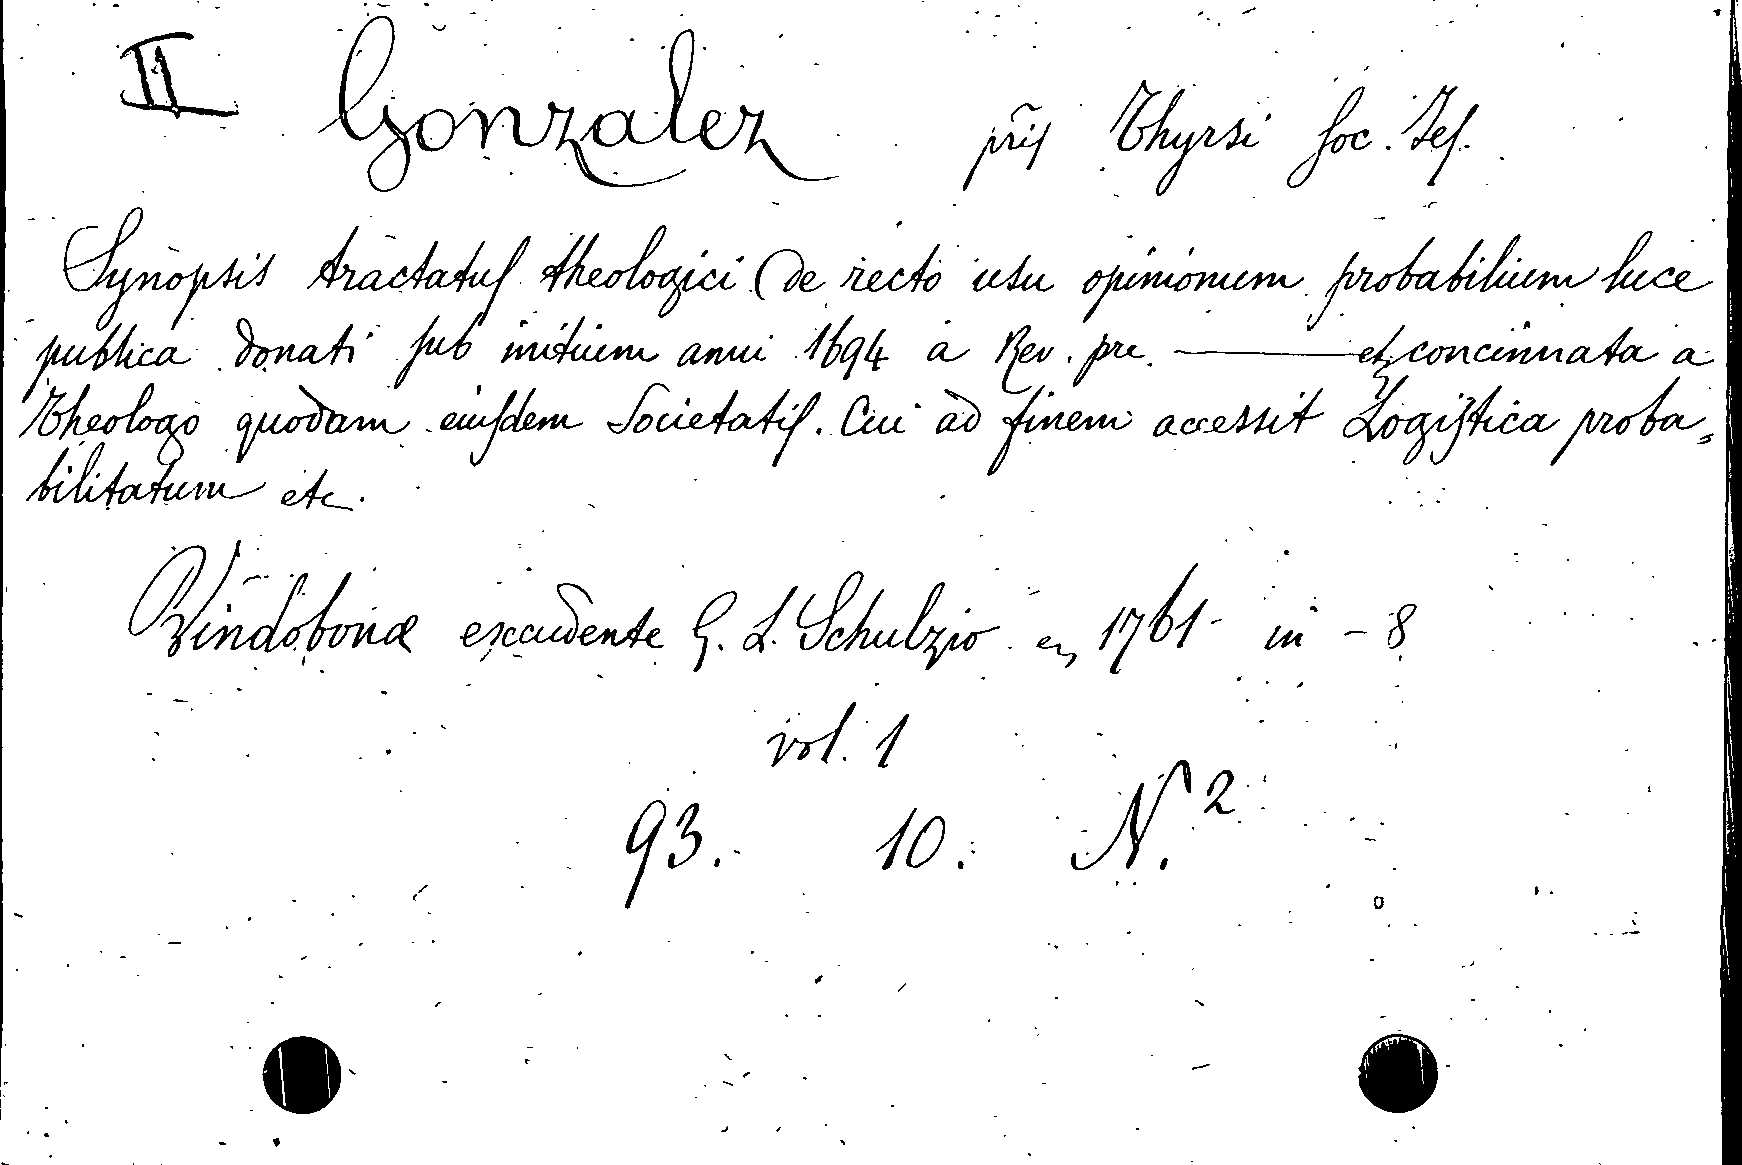 II Gonzalez pris Thyrsi Soc. Jes.
Synopsis tractatus theologici (de recto usu opinionum probabilium luce
publica donati sub initium anni 1694 a Rev. pre. ——— et concinnata a
Theologo quodam eiusdem Societatis. Cui ad finem accessit Logistica proba=
bilitatum etc.
Vindobonæ excudente G. L. Schulzio en 1761 in - 8
vol. 1
93. 10. N.2